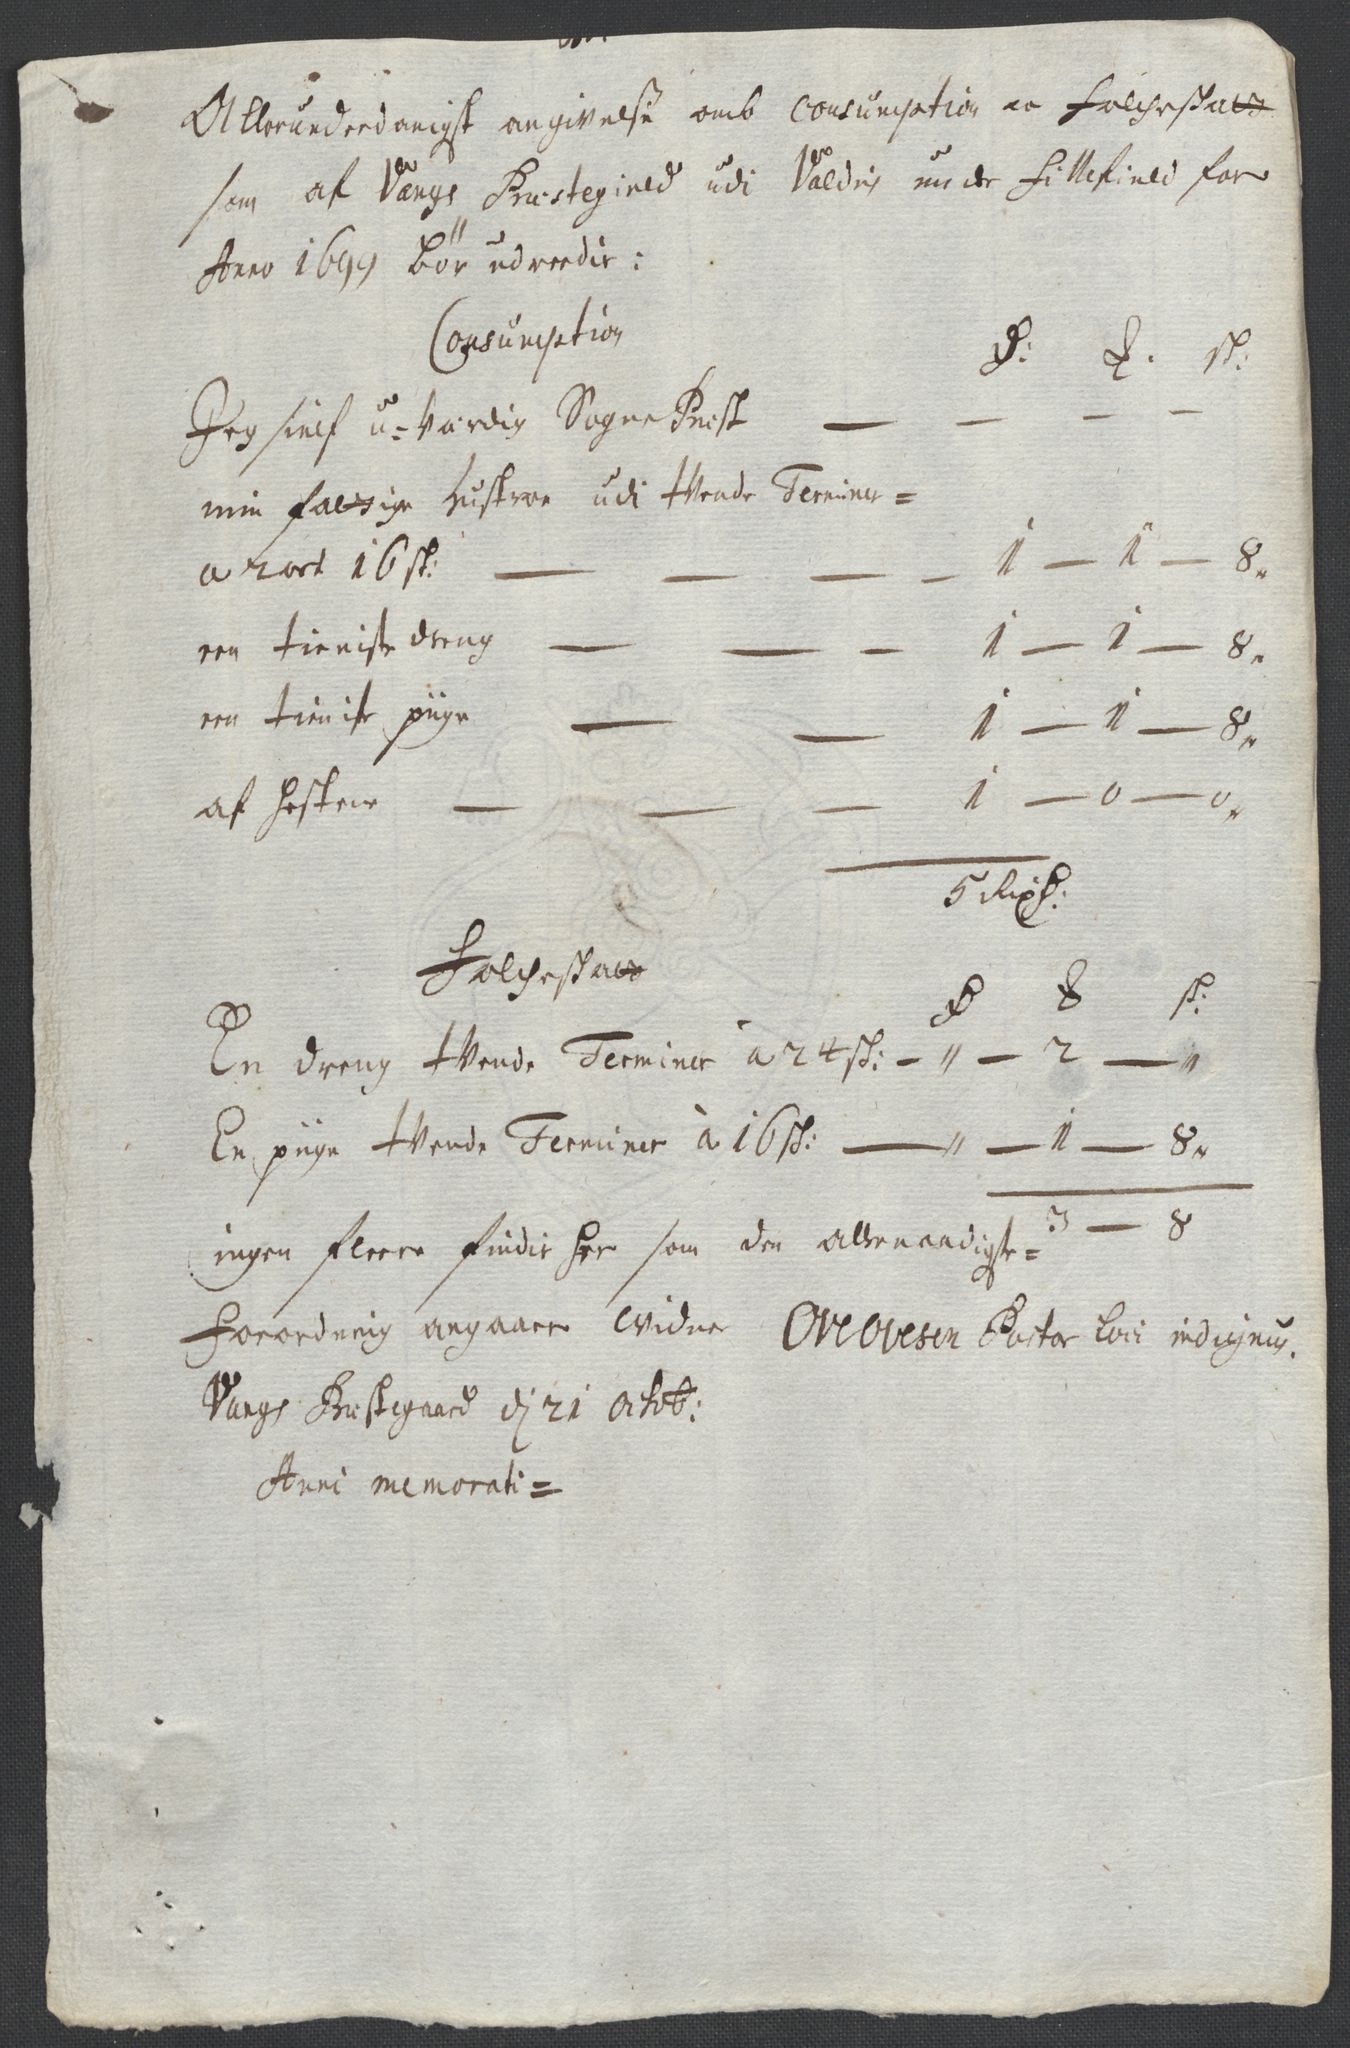 Allerunderdanigst angivelse omb Consumption oc Folcheskatt
som af Vangs Præstegield udi Valdris under Fillefield for
Anno 1699 bör udreedis:
Consumption
Rdr: ort. sk:
Jeg sielf u-værdig Sogne Præst — — — —
min fattige hustroe udi tvende Terminer =
a 2 ort 16 sk: — — — — 1 — 1 — 8„
een tieniste dreng — — — 1 — 1 — 8„
een tieniste piige — — 1 — 1 — 8„
af hester — — — 1 — 0 — 0„
5 Rixdr:
Folcheskatt
Rdr ort sk:
En dreng tvende Terminer à 24 sk: — „ — 2 — „
En piige tvende Terminer à 16 sk: — „ — 1 — 8„
3 — 8
ingen fleere findis her som den allernaadigste =
Forordning angaaer vidner Ove Ovesen Pastor loci indignus.
Vangs Præstegaard dj 21 octob:
Anni memorati =